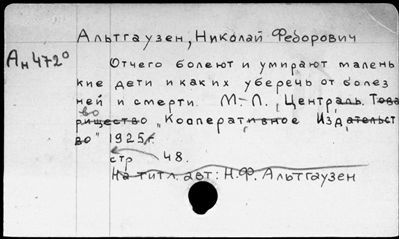 Альтгаузен, Николай Федорович
Ан 472°
Отчего болеют и умирают малень
кие дети и как их уберечь от болез
ней и смерти. М.-Л., Централь. Това
рищество во "Кооператив­ное Издательст
во" 1925г.
стр 48.
На титл. авт: Н.Ф. Альтгаузен